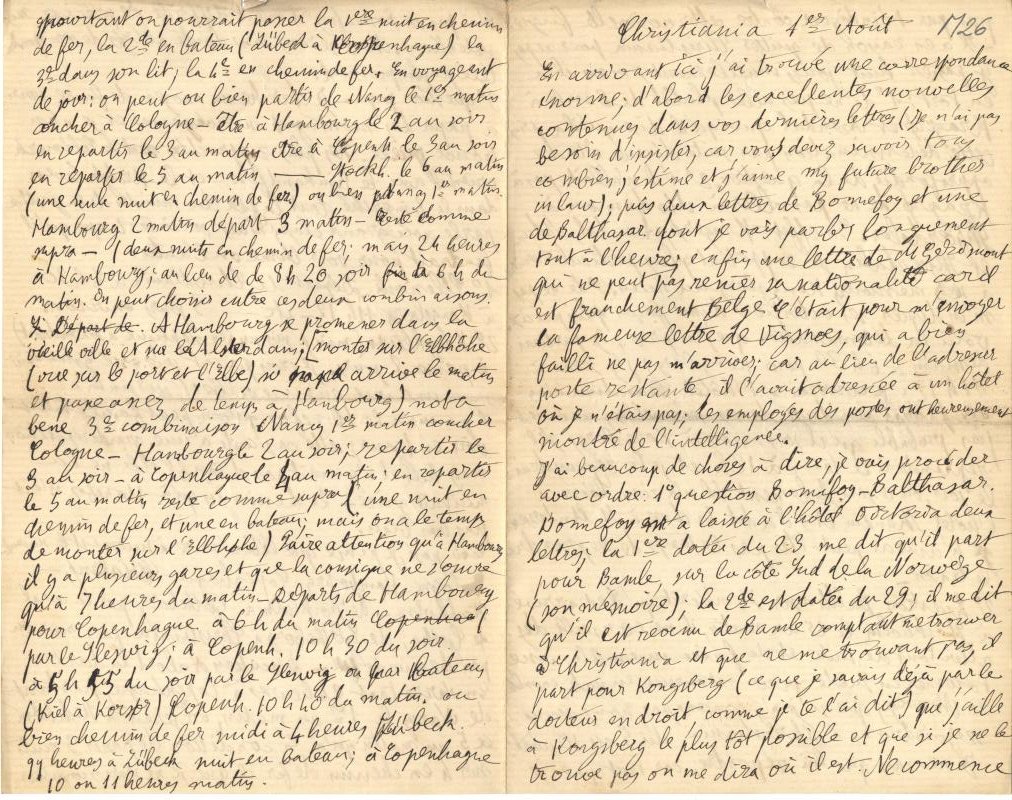 pourtant on pourrait passer la 1ere nuit en chemin
de fer, la 2de en bateau (Lübeck à Copenhague) la
3e dans son lit, la 4e en chemin de fer. En voyageant
de jour: on peut ou bien partir de Nancy le 1er matin
coucher à Cologne – être à Hambourg le 2 au soir
en repartir le 3 au matin être à Copenh le 3 au soir
en repartir le 5 au matin —— Stockh. le 6 au matin
(une seule nuit en chemin de fer) ou bien Nancy 1er matin.
Hambourg 2 matin départ 3 matin – reste comme
supra – (deux nuits en chemin de fer; mais 24 heures
à Hambourg; au lieu de de 8h 20 soir à 6 h du
matin. On peut choisir entre ces deux combinaisons.
Départ de. A Hambourg se promener dans la
vieille ville et sur l'Alsterdam; (monter sur l'Elbhöhe
(vue sur le port et l'Elbe) si on arrive le matin
et passe assez de temps à Hambourg) nota
bene 3e combinaison Nancy 1er matin coucher
Cologne – Hambourg le 2 au soir; repartir le
3 au soir – à Copenhague le 4 au matin; en repartir
le 5 au matin reste comme supra (une nuit en
chemin de fer, et une en bateau; mais on a le temps
de monter sur l'Elbhöhe) Faire attention qu'à Hambourg
il y a plusieurs gares et que la consigne ne s'ouvre
qu'à 7 heures du matin – Départs de Hambourg
pour Copenhague à 6h du matin
par le Sleswig; à Copenh. 10h 30 du soir
à 5h 55 du soir par le Sleswig ou par bateau
(Kiel à Korsör) Copenh. 10h 40 du matin. ou
bien chemin de fer midi à 4 heures Lübeck.
11 heures à Lübeck nuit en bateau; à Copenhague
10 ou 11 heures matin.
Christiania 1er Août 1726
En arrivant ici j'ai trouvé une correspondance
énorme; d'abord les excellentes nouvelles
contenues dans vos dernières lettres (je n'ai pas
besoin d'insister, car vous devez savoir tous
combien j'estime et j'aime my future brother
in law); puis deux lettres de Bonnefoy et une
de Balthasar dont je vais parler longuement
tout à l'heure; enfin une lettre de M Gerimont
qui ne peut pas renier sa nationalité car il
est franchement Belge c'était pour m'envoyer
la fameuse lettre de Vignoes, qui a bien
failli ne pas m'arriver; car au lieu de l'adresser
poste restante, il l'avait adressée à un hôtel
où je n'étais pas; les employés des postes ont heureusement
montré de l'intelligence.
J'ai beaucoup de choses à dire, je vais procéder
avec ordre. 1o question Bonnefoy – Balthasar.
Bonnefoy m'a laissé à l'hôtel Victoria deux
lettres; la 1ere datée du 23 me dit qu'il part
pour Bamble, sur la côte Sud de la Norwège
(son mémoire); la 2de est datée du 29; il me dit
qu'il est revenu de Bamble comptant me trouver
à Christiania et que ne me trouvant pas, il
part pour Kongsberg (ce que je savais déjà par le
docteur en droit comme je te l'ai dit) que j'aille
à Kongsberg le plus tôt possible et que si je ne le
trouve pas on me dira où il est. Ne commence